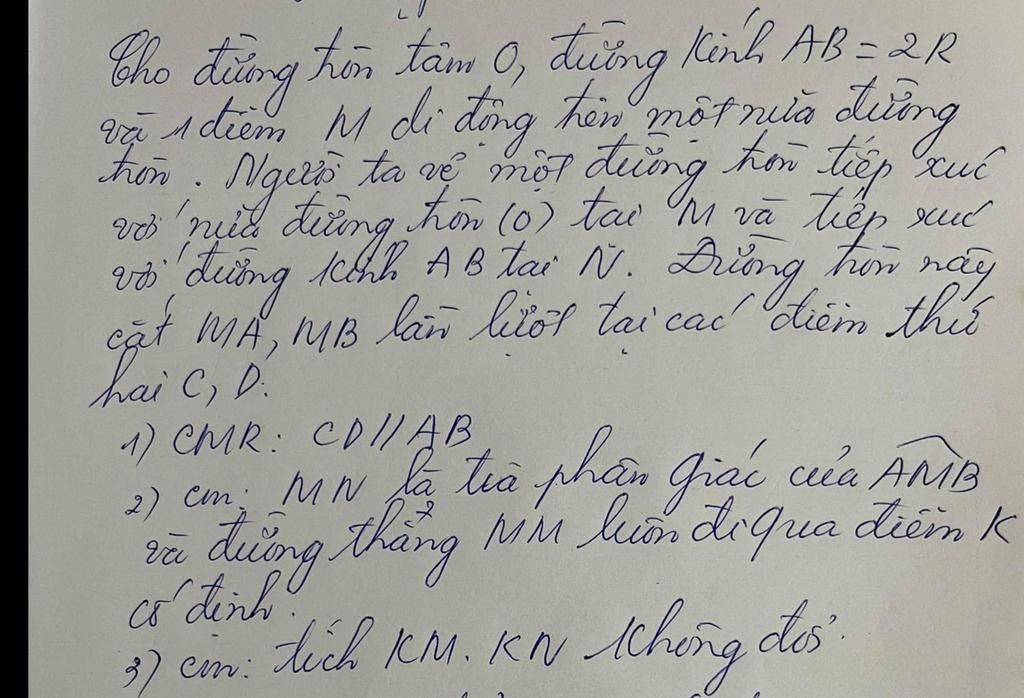 Cho đường tròn tâm O, đường kính AB = 2R
và 1 điểm M di động trên một nửa đường
tròn. Người ta vẽ một đường tròn tiếp xúc
với nửa đường tròn (O) tại M và tiếp xúc
với đường kính AB tại N. Đường tròn này
cắt MA, MB lần lượt tại các điểm thứ
hai C, D.
1) CMR: CD // AB
2) cm: MN là tia phân giác của AMB
và đường thẳng MM luôn đi qua điểm K
cố định.
3) cm: tích KM. KN không đổi.